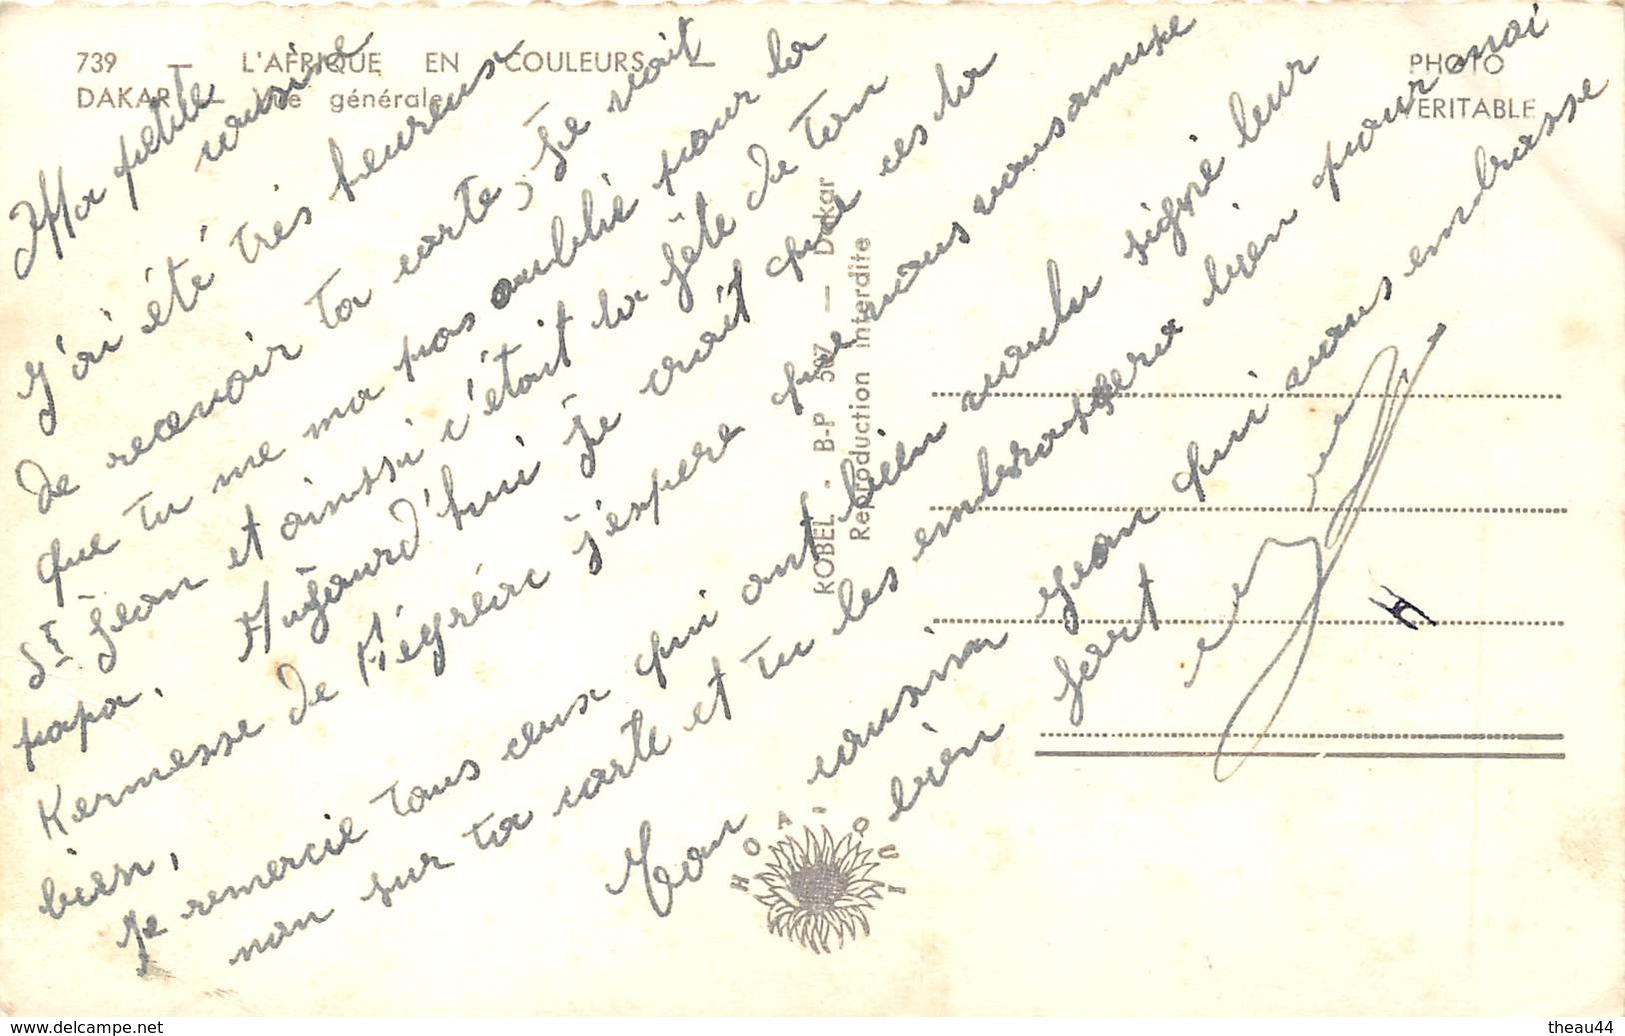 739 — L'AFRIQUE EN COULEURS —
DAKAR — Vue générale
PHOTO
VERITABLE
Ma petite
cousine
J'ai été très heureux
de recevoir ta carte, je voit
que tu me ma pas oublié pour la
St Jean et ainssi c'était la fête de ton
papa. Aujourd'hui je croit que ces la
Kermesse de Plégréac j'espere que vous vous amuse
bien,
Je remercie tous ceux qui ont bien voulu signé leur
non sur ta carte et tu les embrassera bien pour moi
Ton cousin Jean qui vous embrasse
bien fort
ROBEL - B-P 507 — Dakar
Reproduction interdite
HOA-QUI
H
delcampe.net
theau44